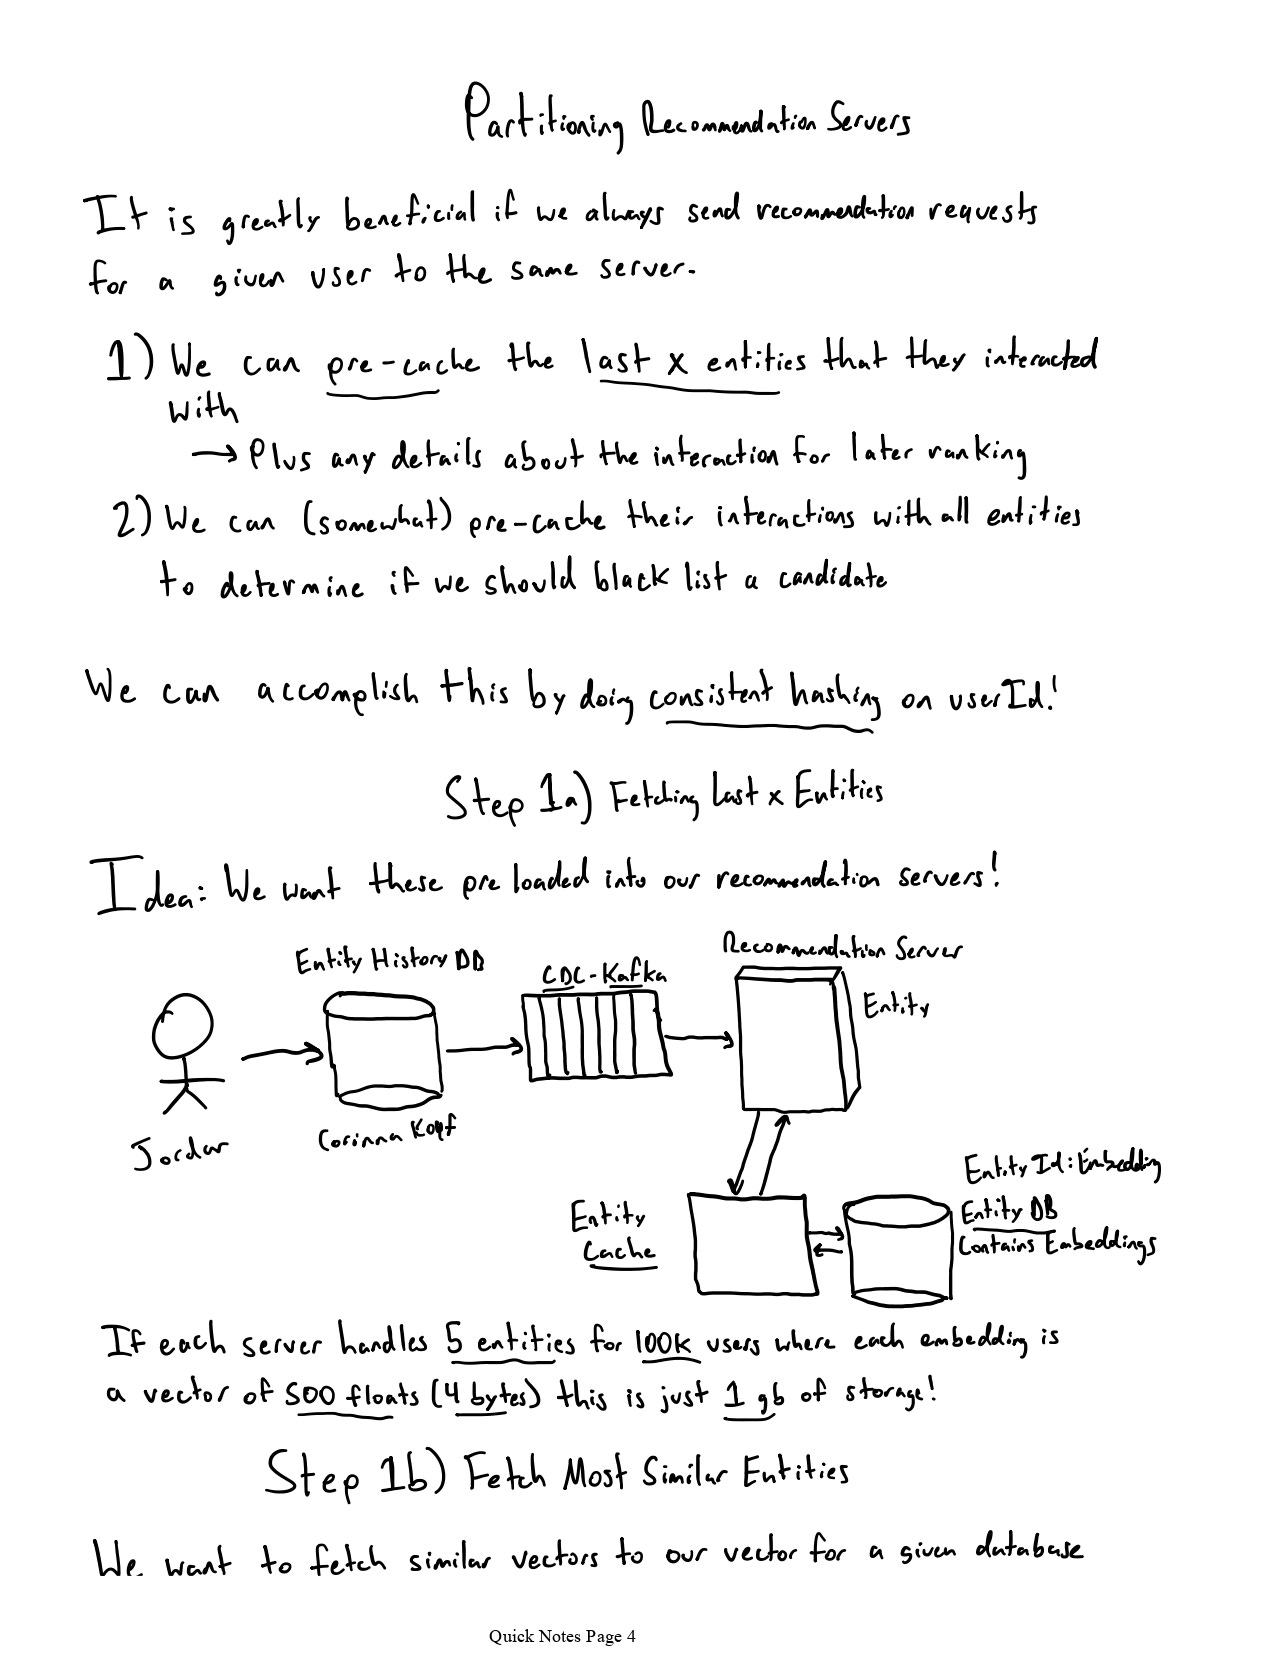 Partitioning Recommendation Servers
It is greatly beneficial if we always send recommendation requests
for a given user to the same server.
1) We can pre-cache the last x entities that they interacted
with
→ Plus any details about the interaction for later ranking
2) We can (somewhat) pre-cache their interactions with all entities
to determine if we should black list a candidate
We can accomplish this by doing consistent hashing on userId!
Step 1a) Fetching last x Entities
Idea: We want these pre loaded into our recommendation servers!
Recommendation Server
Entity History DB
CDC-Kafka
Entity
Jordan
Corinna Kopf
Entity Id: Embedding
Entity
Cache
Entity DB
Contains Embeddings
If each server handles 5 entities for 100k users where each embedding is
a vector of 500 floats (4 bytes) this is just 1 gb of storage!
Step 1b) Fetch Most Similar Entities
We want to fetch similar vectors to our vector for a given database
Quick Notes Page 4